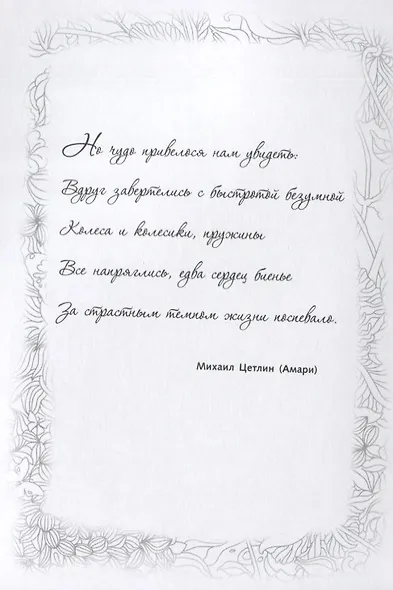 Но чудо привелося нам увидеть:
Вдруг завертелись с быстротой безумной
Колеса и колесики, пружины
Все напряглись, едва сердец биенье
За страстным темпом жизни поспевало.
Михаил Цетлин (Амари)